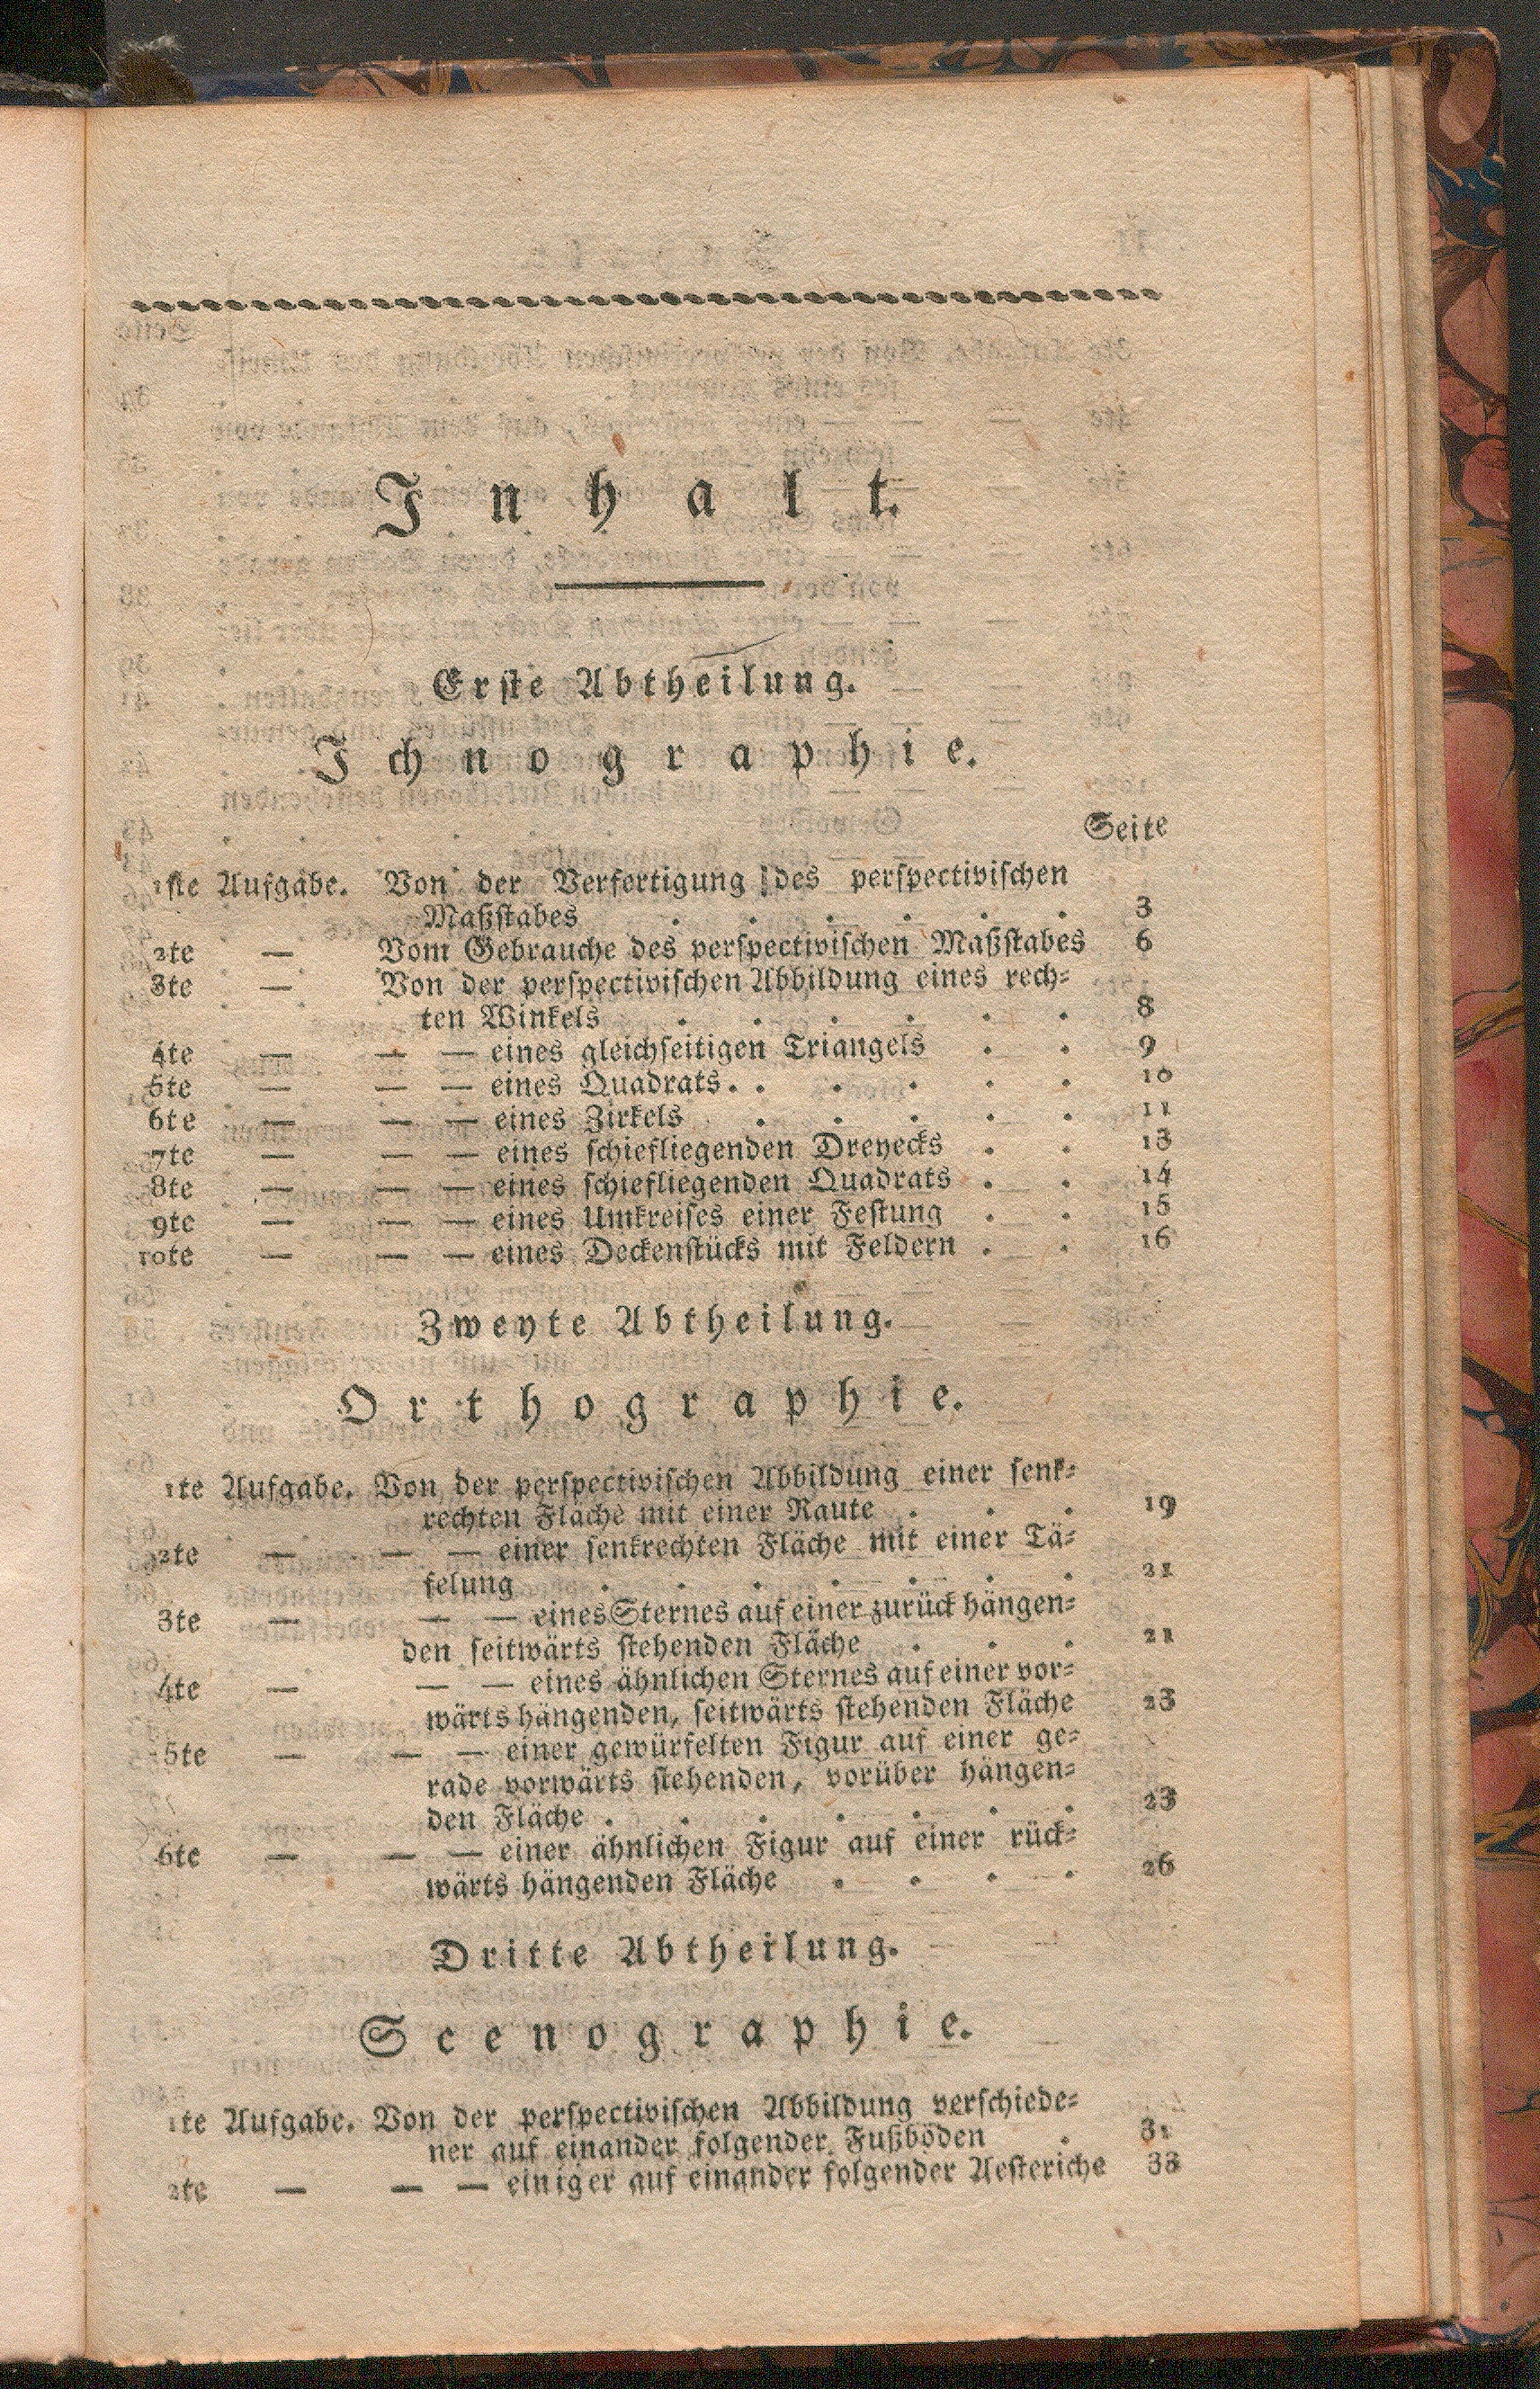 Inhalt.
Erste Abtheilung.
Ichnographie.
Seite
1ste Aufgabe. Von der Verfertigung des perspectivischen
Maßstabes . . . . . . 3
2te — Vom Gebrauche des perspectivischen Maßstabes 6
3te — Von der perspectivischen Abbildung eines rech-
ten Winkels . . . . . . 8
4te — — — eines gleichseitigen Triangels . . 9
5te — — — eines Quadrats. . . . . . 10
6te — — — eines Zirkels . . . . . 11
7te — — — eines schiefliegenden Dreyecks . . 13
8te — — — eines schiefliegenden Quadrats . . 14
9te — — — eines Umkreises einer Festung . . 15
10te — — — eines Deckenstücks mit Feldern . . 16
Zweyte Abtheilung.
Orthographie.
1te Aufgabe. Von der perspectivischen Abbildung einer senk-
rechten Fläche mit einer Raute . . . 19
2te — — — einer senkrechten Fläche mit einer Tä-
felung . . . . . . . 21
3te — — — eines Sternes auf einer zurück hängen-
den seitwärts stehenden Fläche . . . 21
4te — — — eines ähnlichen Sternes auf einer vor-
wärts hängenden, seitwärts stehenden Fläche 23
5te — — — einer gewürfelten Figur auf einer ge-
rade vorwärts stehenden, vorüber hängen-
den Fläche . . . . . . . 23
6te — — — einer ähnlichen Figur auf einer rück-
wärts hängenden Fläche . . . . 26
Dritte Abtheilung.
Scenographie.
1te Aufgabe. Von der perspectivischen Abbildung verschiede-
ner auf einander folgender Fußböden . 31
2te — — — einiger auf einander folgender Aesteriche 33